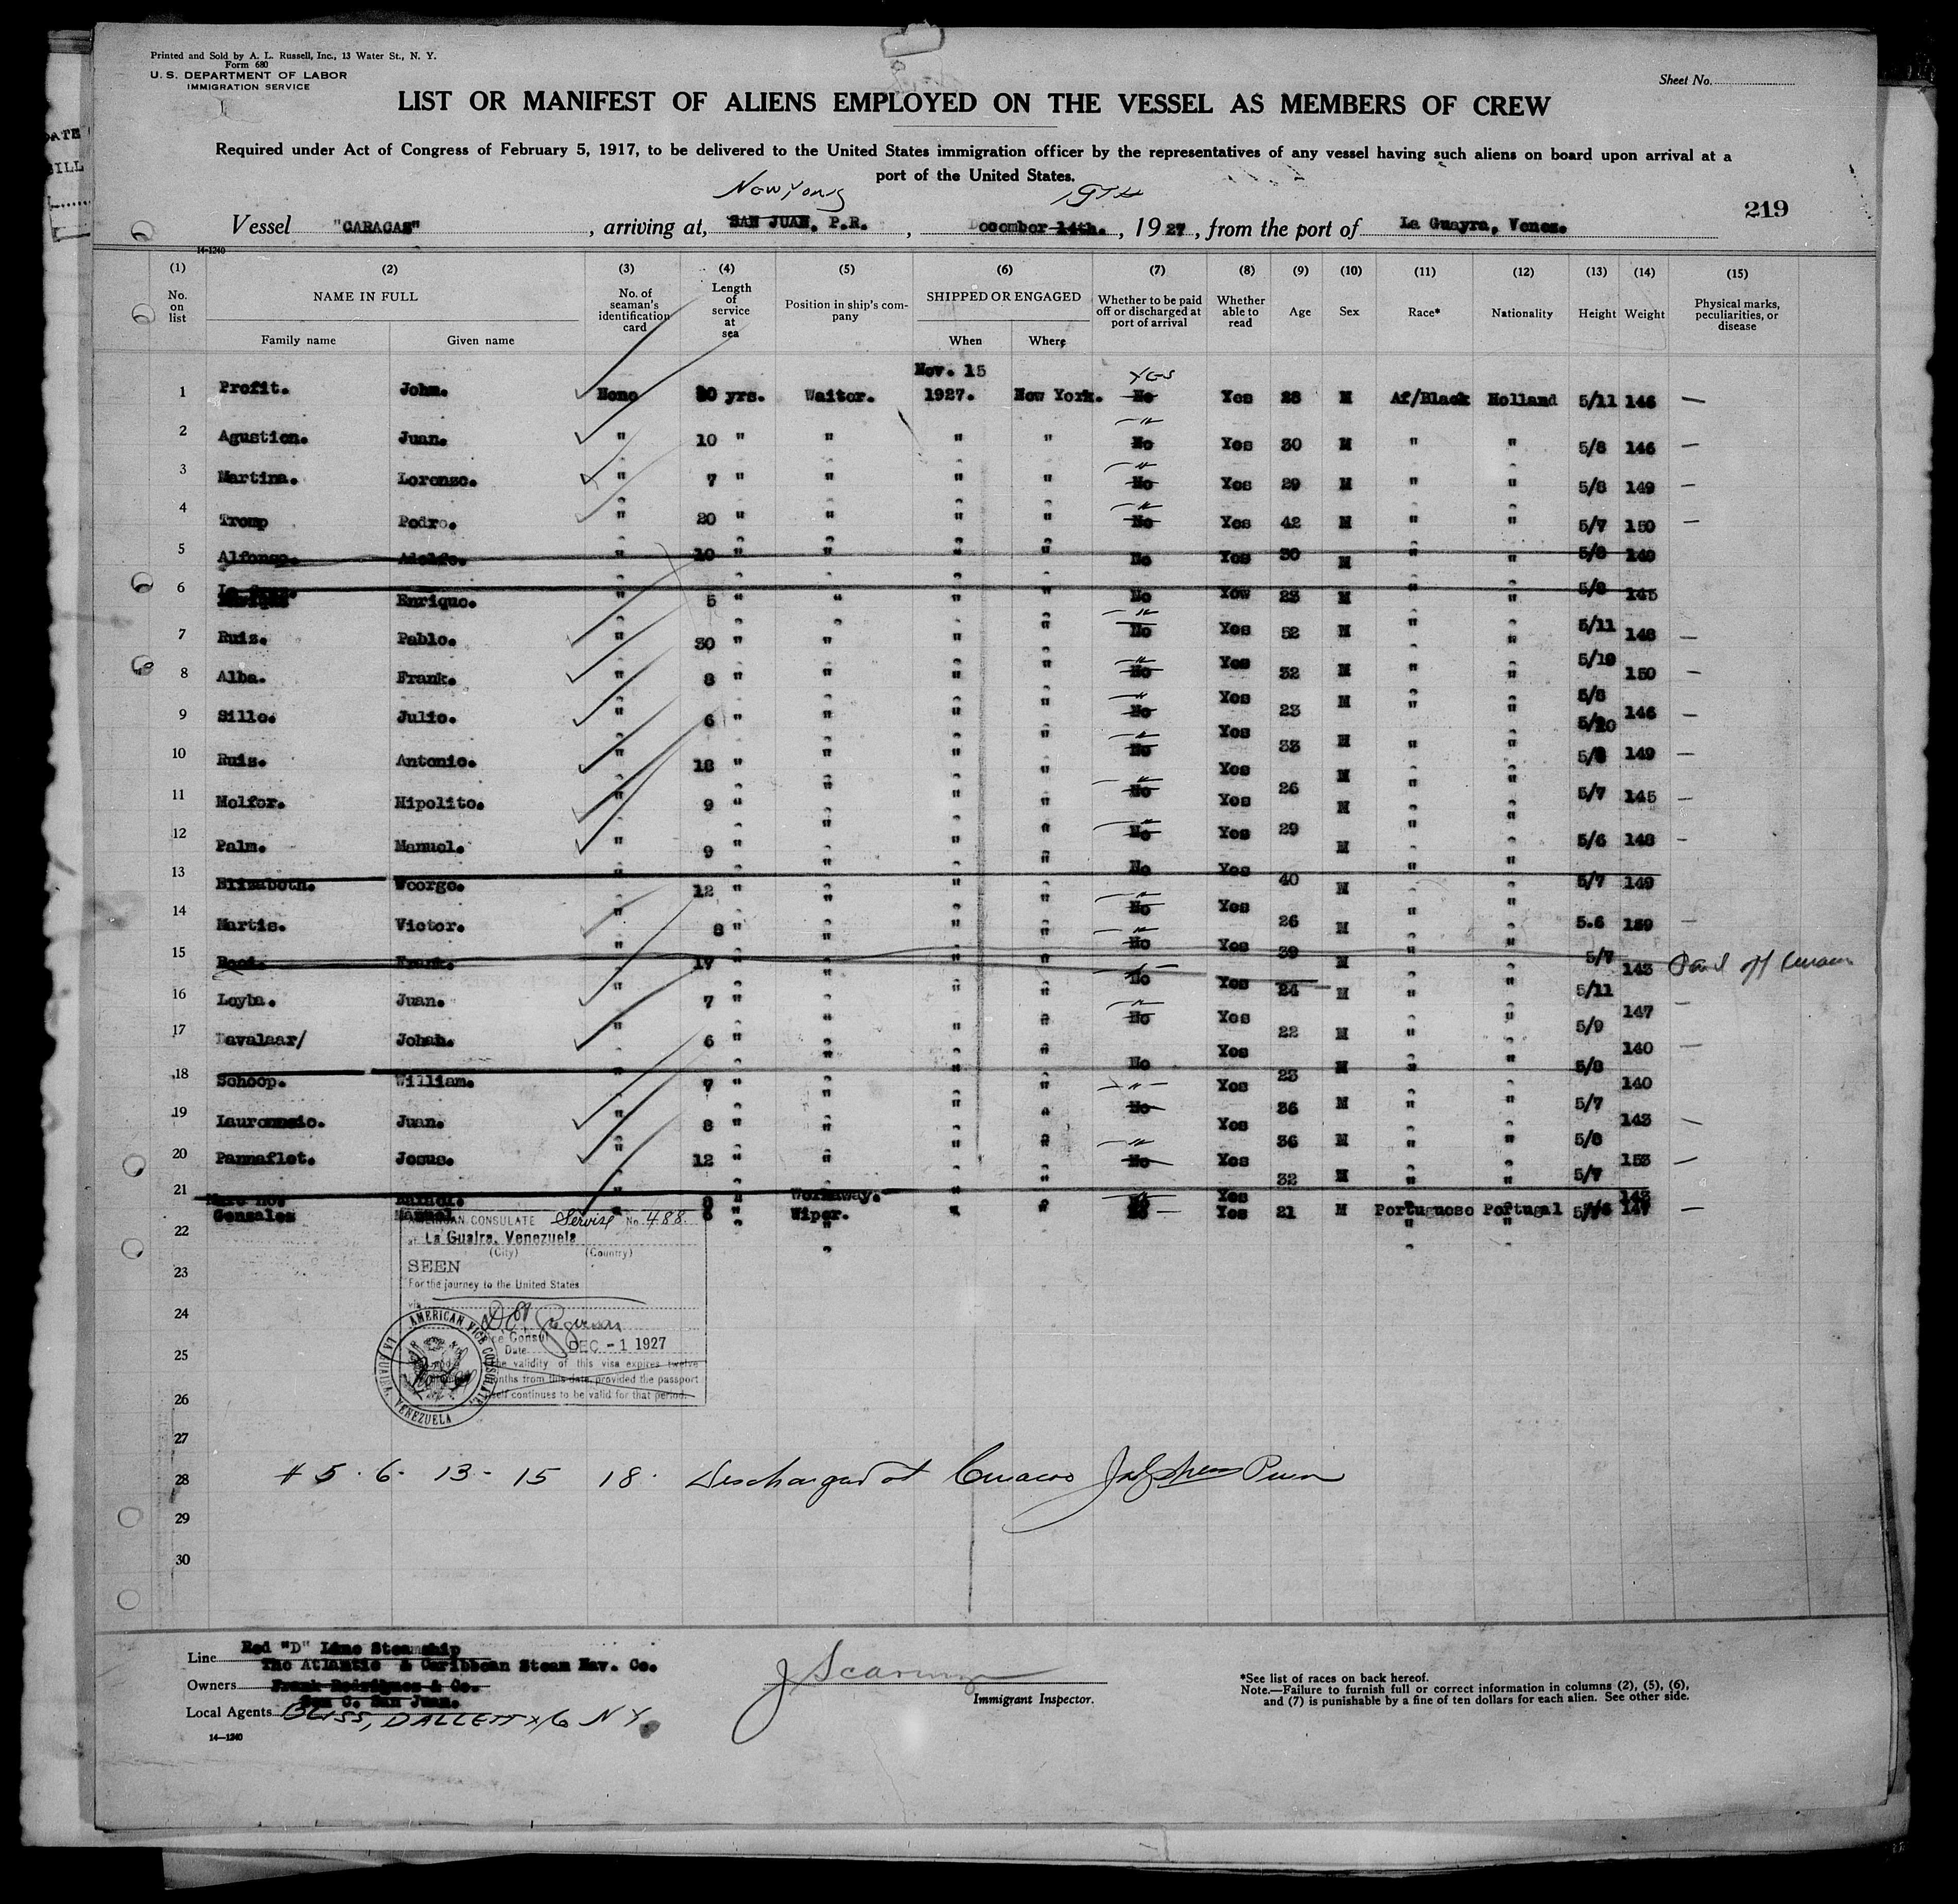 Printed and Sold by A. L. Russell, Inc., 13 Water St., N. Y.
Form 680
U. S. DEPARTMENT OF LABOR
IMMIGRATION SERVICE
Sheet No.
LIST OR MANIFEST OF ALIENS EMPLOYED ON THE VESSEL AS MEMBERS OF CREW
Required under Act of Congress of February 5, 1917, to be delivered to the United States immigration officer by the representatives of any vessel having such aliens on board upon arrival at a
port of the United States.
New York 19TH
219
Vessel "CARACAS", arriving at, SAN JUAN, P.R., December 14th., 1927, from the port of La Guayra, Venez.
14-1240
(1) (2) (3) (4) (5) (6) (7) (8) (9) (10) (11) (12) (13) (14) (15)
No. on list NAME IN FULL No. of seaman's identification card Length of service at sea Position in ship's company SHIPPED OR ENGAGED Whether to be paid off or discharged at port of arrival Whether able to read Age Sex Race* Nationality Height Weight Physical marks, peculiarities, or disease
Family name Given name When Where
Nov. 15 YES
1 Profit. John. None 30 yrs. Waiter. 1927. New York. No Yes 28 M Af/Black Holland 5/11 146 —
2 Agustien. Juan. " 10 " " " " No Yes 30 M " " 5/8 146 —
3 Martina. Lorenzo. " 7 " " " " No Yes 29 M " " 5/8 149 —
4 Tromp Pedro. " 20 " " " " No Yes 42 M " " 5/7 150 —
5 Alfonso. Adolfo. " 10 " " " " No Yes 30 M " " 5/8 149
6 Enrique. " 5 " " " " No Yow 23 M " " 5/8 145
7 Ruiz. Pablo. " 30 " " " " No Yes 52 M " " 5/11 148 —
8 Alba. Frank. " 8 " " " " No Yes 32 M " " 5/10 150 —
9 Sille. Julio. " 6 " " " " No Yes 23 M " " 5/8 146 —
10 Ruiz. Antonio. " 18 " " " " No Yes 33 M " " 5/8 149 —
11 Melfor. Hipolito. " 9 " " " " No Yes 26 M " " 5/7 145 —
12 Palm. Manuel. " 9 " " " " No Yes 29 M " " 5/6 148 —
13 Elizabeth. Weorge. " 12 " " " " No Yes 40 M " " 5/7 149
14 Martis. Victor. " 8 " " " " No Yes 26 M " " 5.6 139 —
15 Frank. " 17 " " " " No Yes 39 M " " 5/7 143 Paid off
16 Loyba. Juan. " 7 " " " " No Yes 24 M " " 5/11 147 —
17 Davalaar/ Johan. " 6 " " " " No Yes 22 M " " 5/9 140 —
18 Schoop. William. " 7 " " " " No Yes 23 M " " 5/8 140
19 Juan. " 8 " " " " No Yes 36 M " " 5/7 143 —
20 Pannaflet. Jesus. " 12 " " " " No Yes 36 M " " 5/8 153 —
21 Workaway. Yes 32 M 5/7 143
Gonzales Manuel 6 " Wiper. " " No Yes 21 M Portuguese Portugal 147 —
22
AMERICAN CONSULATE Service No. 488
at La Guaira, Venezuela
(City) (Country)
23
SEEN
For the journey to the United States
via
24
Vice Consul
25
Date DEC - 1 1927
The validity of this visa expires twelve
months from this date, provided the passport
itself continues to be valid for that period.
AMERICAN VICE CONSULATE LA GUAIRA, VENEZUELA
26
27
28 # 5 - 6 - 13 - 15 18. Discharged at Curacao
29
30
Line Red "D" Line Steamship
The Atlantic & Caribbean Steam Nav. Co.
Owners Frank Rodriguez & Co.
San Juan.
Local Agents BLISS, DALLETT & Co N Y.
14—1240
Immigrant Inspector.
*See list of races on back hereof.
Note.—Failure to furnish full or correct information in columns (2), (5), (6),
and (7) is punishable by a fine of ten dollars for each alien. See other side.